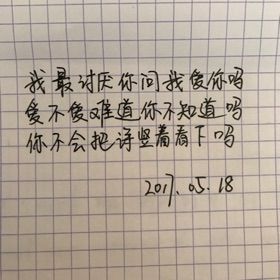 我最讨厌你问我爱你吗
爱不爱难道你不知道吗
你不会把诗竖着看下吗
2017.05.18